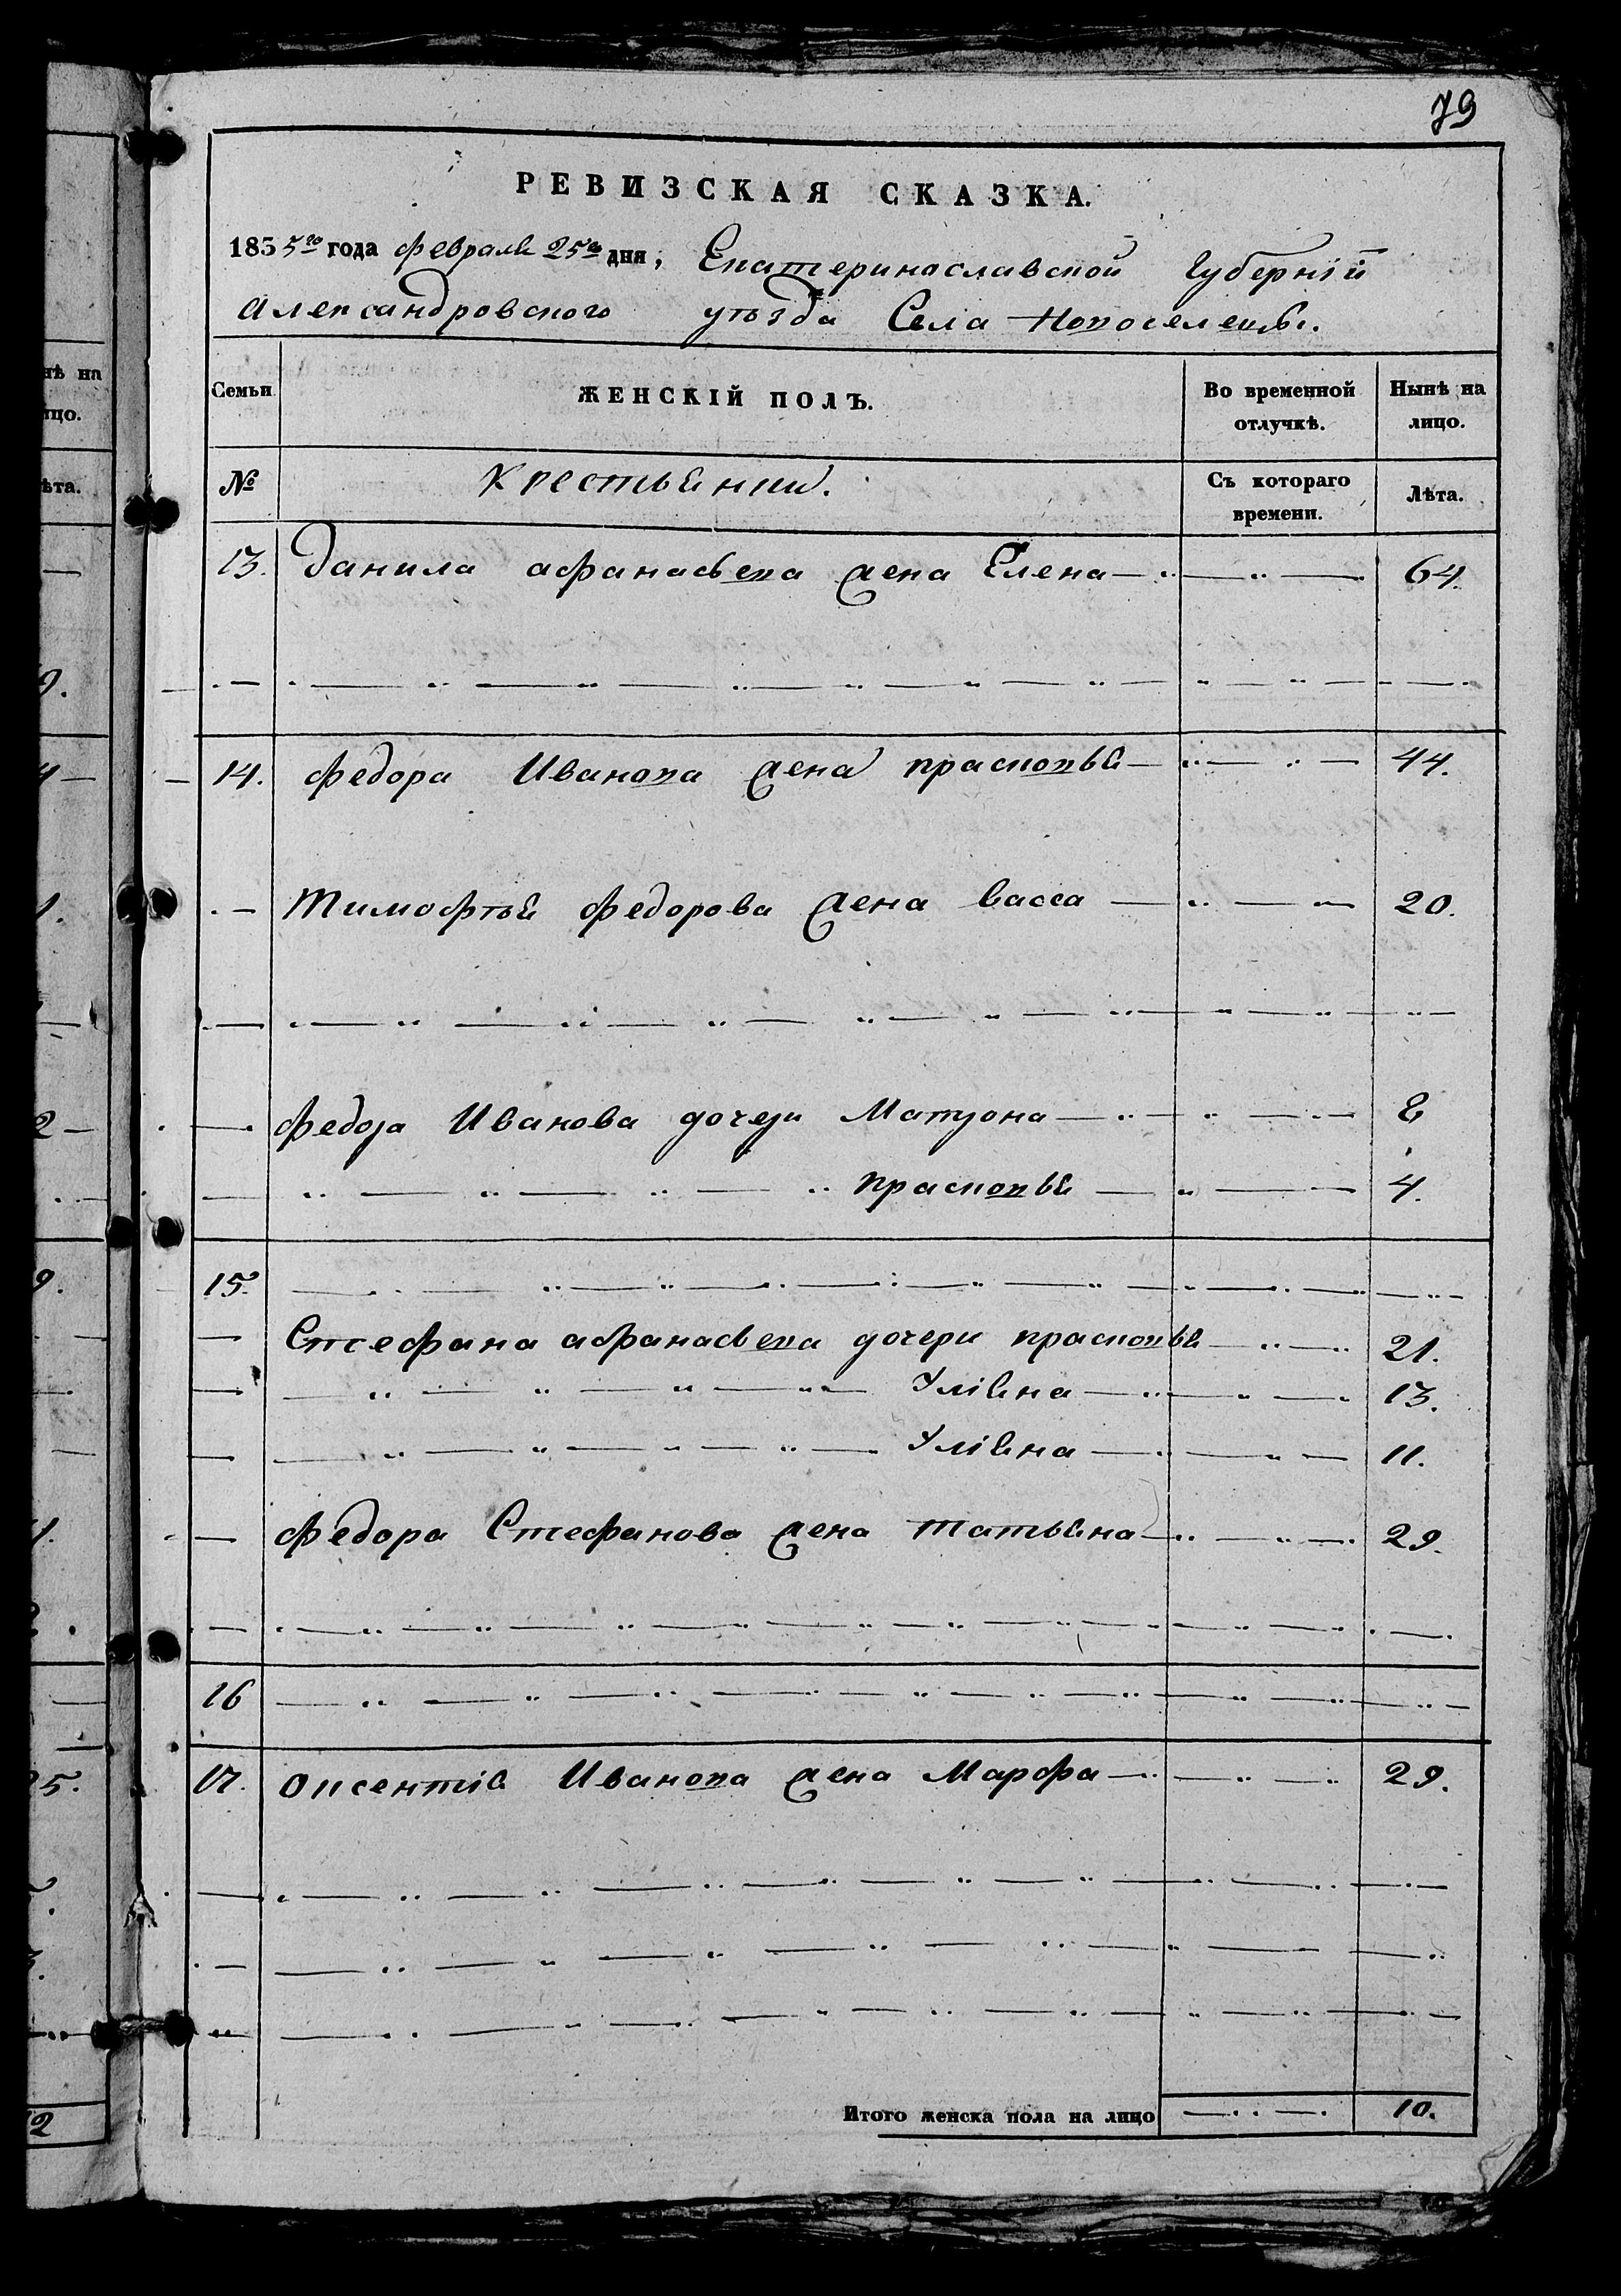 79
РЕВИЗСКАЯ СКАЗКА.
1835го года февраля 25го дня, Екатеринославской Губерніи
Александровского уѣзда Села
Семьи ЖЕНСКІЙ ПОЛЪ. Во временной отлучкѣ. Нынѣ на лицо.
№ Крестьянки. Съ котораго времени. Лѣта.
13. Данила афанасьева жена Елена — 64.
14. Федора Иванова жена прасковья — 44.
— Тимофѣя Федорова жена васса — 20.
— Федора Иванова дочери Матрона —
— прасковья — 4.
15.
— Стефана афанасьева дочери прасковья — 21.
— Уліяна — 13.
— Уліяна — 11.
— Федора Стефанова жена татьяна — 29.
16
17. Оксентія Иванова жена Марфа — 29.
Итого женска пола на лицо 10.
нѣ на
ицо.
ѣта.